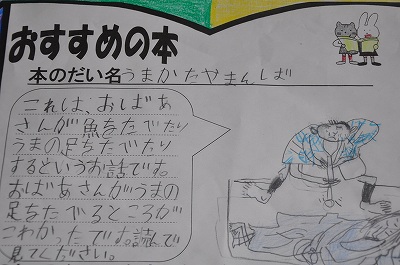 おすすめの本
本のだい名うまかたやまんしば
これは、おしばあ
さんが魚をたでたり
うまの足をたでたり
するというお話です。
おばあさんがうまの
足をたでるところが
こわかったです。読んで
見てください。